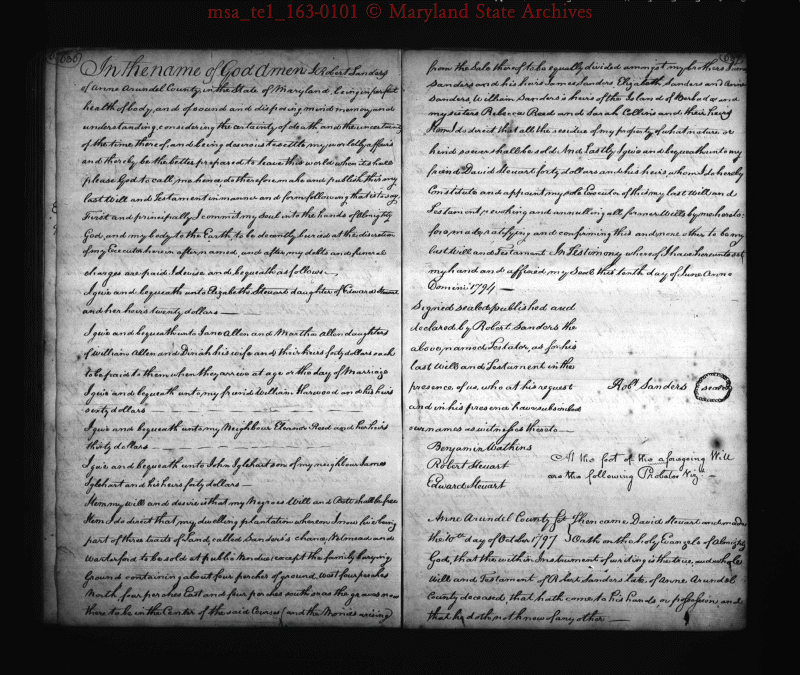 msa_te1_163-0101 © Maryland State Archives
636
In the name of God Amen I Robert Sanders
of Anne Arundel County in the State of Maryland, being in perfect
health of body, and of sound and disposing mind memory and
understanding, considering the certainty of death and the uncertainty
of the time thereof, and being desirous to settle my worldly affairs
and thereby be the better prepared to leave this world when it shall
please God to call me hence do therefore make and publish this my
last Will and Testament in manner and form following that is to say
First and principally I commit my soul into the hands of Almighty
God, and my body to the Earth to be decently buried at the discretion
of my Executor herein after named, and after my debts and funeral
charges are paid I devise and bequeath as follows
I give and bequeath unto Elizabeth Stewart daughter of Edward Stewart
and her heirs twenty dollars
I give and bequeath unto Jane Allen and Martha Allen daughters
of William Allen and Dinah his wife and their heirs forty dollars each
to be paid to them when they arrive at age or the day of Marriage
I give and bequeath unto my friend William Harwood and his heirs
sixty dollars
I give and bequeath unto my Neighbour Eleanor Reed and her heirs
thirty dollars
I give and bequeath unto John Iglehart son of my neighbour James
Iglehart and his heirs forty dollars
Item my will and desire is that my Negroes Will and shall be free
Item I do direct that my dwelling plantation whereon I now live being
part of three tracts of Land, called Sanders's chance, and
Waterford to be sold at public Vendue except the family burying
Ground containing about four perches of ground, West four perches
North, four perches East and four perches south so as the graves now
there to be in the Center of the said Course (and the Monies arising
637
from the Sale thereof to be equally divided amongst my brothers
Sanders and his heirs James Sanders Elizabeth Sanders and Anne
Sanders, William Sanders's heirs of the Island of and
my sisters Rebecca Reed and Sarah Collins and their heirs
Item I do direct that all the residue of my property of what nature or
kind soever shall be sold And Lastly I give and bequeath unto my
friend David Stewart forty dollars and his heirs whom I do hereby
Constitute and appoint my sole Executor of this my last Will and
Testament, revoking and annulling all former Wills by me hereto-
fore made, ratifying and confirming this and none other to be my
last Will and Testament In Testimony whereof I have hereunto set
my hand and affixed my Seal this tenth day of June Anno
Domini 1794
Signed sealed published and
declared by Robert Sanders the
above named Testator, as for his
last Will and Testament in the
presence of us, who at his request Robt Sanders seal
and in his presence have subscribed
our names as witnesses thereto
Benjamin Watkins
Robert Stewart
Edward Stewart
At the foot of the aforegoing Will
are the following Probates Viz.
Anne Arundel County Sst Then came David Stewart and made
the 10th day of October 1797 Oath on the holy Evangels of Almighty
God, that the within Instrument of writing is the true, and whole
Will and Testament of Robert Sanders late of Anne Arundel
County deceased, that hath come to his hands or possession, and
that he doth not know of any other